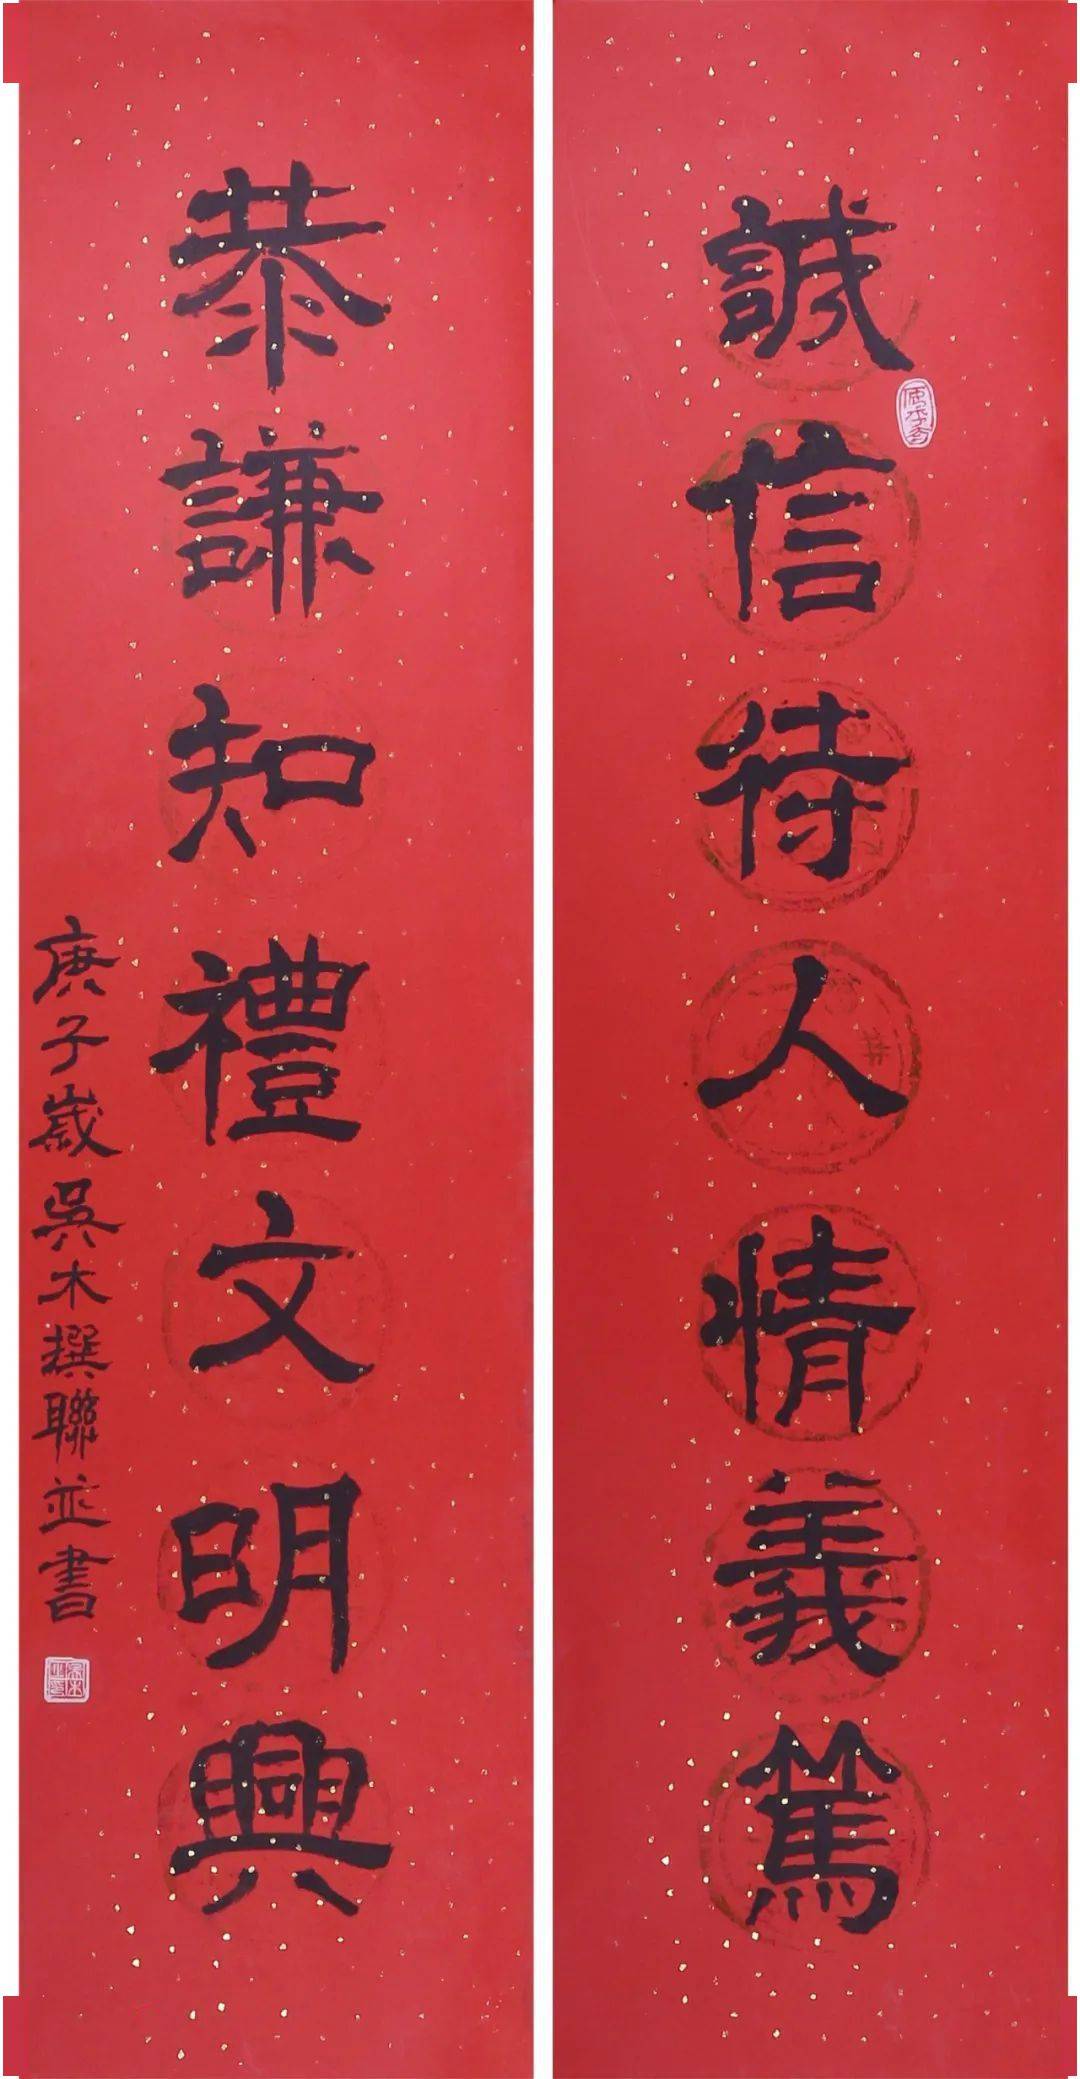 誠信待人情義篤
恭謙知禮文明興
庚子歲吳木撰聯並書